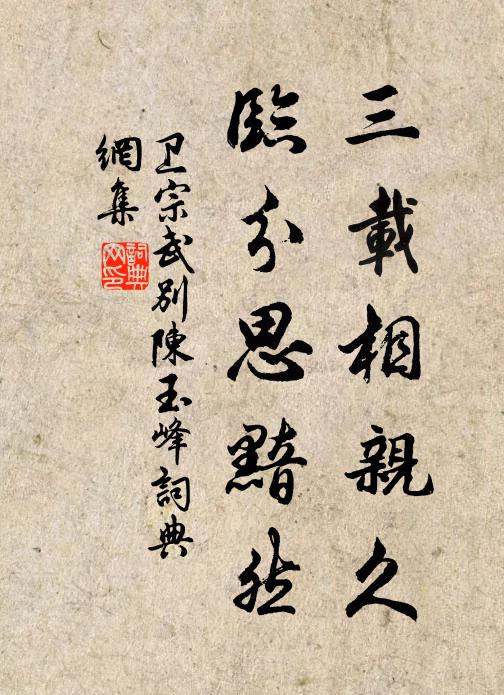 三載相親久
臨分思黯然
卫宗武別陳玉峰詞典
網集
詞典
网印